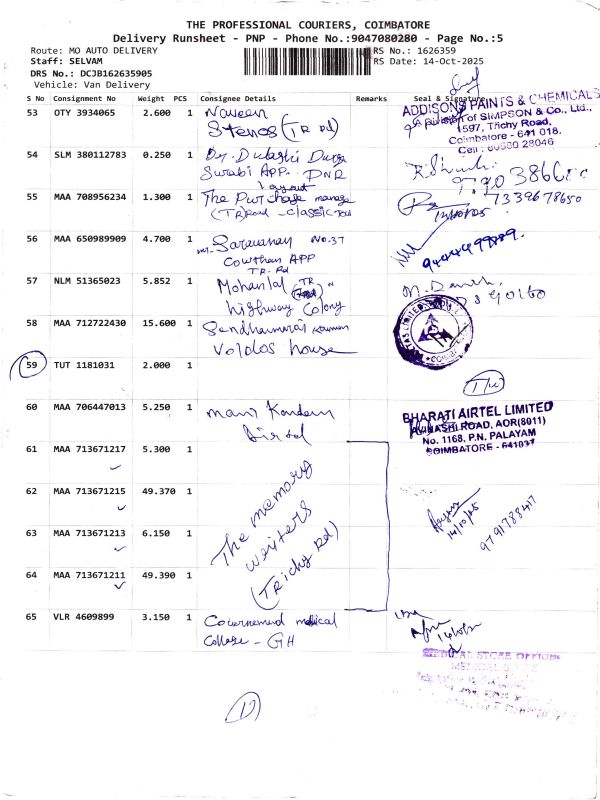 THE PROFESSIONAL COURIERS, COIMBATORE
Delivery Runsheet - PNP - Phone No.:9047080280 - Page No.:5
Route: MO AUTO DELIVERY
RS No.: 1626359
Staff: SELVAM
RS Date: 14-Oct-2025
DRS No.: DCJB162635905
Vehicle: Van Delivery
S No Consignment No Weight PCS Consignee Details Remarks Seal & Signature
53 OTY 3934065 2.600 1 Naveen
Stenos (TR Rd)
ADDISONS PAINTS & CHEMICALS
A Division of SIMPSON & Co., Ltd.,
1597, Trichy Road,
Coimbatore - 641 018.
54 SLM 380112783 0.250 1
Surabi APP. PNR
Layout
55 MAA 708956234 1.300 1 The Purchase manager
(TR) Road - classic
7339678650
56 MAA 650989909 4.700 1 Saravanan No.37
Gowtham APP
TR-Rd
57 NLM 51365023 5.852 1 Mohanlal (TR Rd)
highway Colony
58 MAA 712722430 15.600 1
house
59 TUT 1181031 2.000 1
60 MAA 706447013 5.250 1 Mani
Airtel
BHARATI AIRTEL LIMITED
AVINASHI ROAD, AOR(8011)
No. 1168, P.N. PALAYAM
COIMBATORE - 641037
61 MAA 713671217 5.300 1
62 MAA 713671215 49.370 1
63 MAA 713671213 6.150 1
64 MAA 713671211 49.390 1
The memory
writers
(Trichy Rd)
14/10/25
9791788417
65 VLR 4609899 3.150 1 Government medical
College - GH
MEDICAL STORE OFFICER
MEDICAL STORES